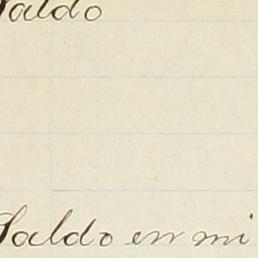 Saldo
Saldo en mi